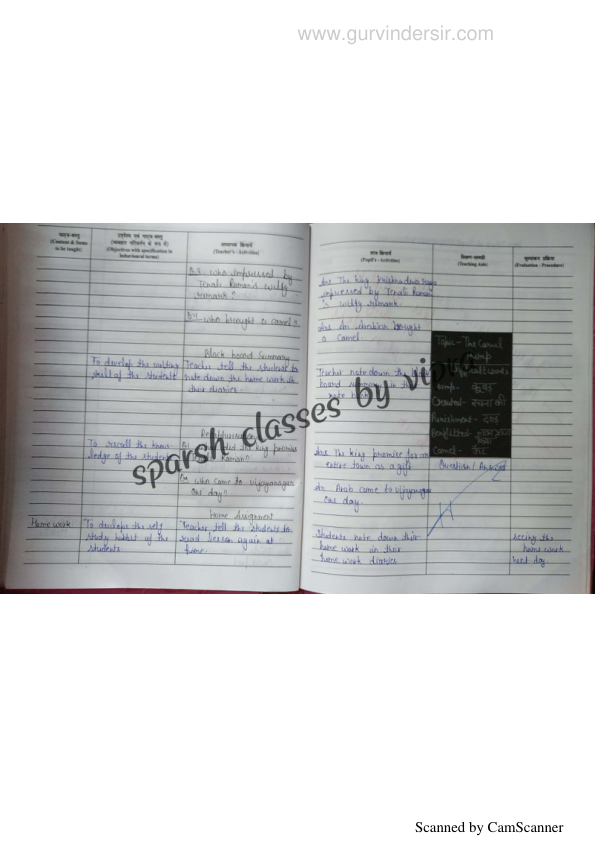 www.gurvindersir.com
पाठ्य-वस्तु
(Content & Items
to be taught)
उद्देश्य एवं पाठ्य-वस्तु
(व्यवहार परिवर्तन के रूप में)
(Objectives with specification in
behavioural terms)
अध्यापक क्रियाएँ
(Teacher's - Activities)
who impressed by
Tenali Raman's witty
remark?
who brought a camel?
Black board Summary
To develop the writing
skill of the students
Teacher tell the student to
note down the home work in
their diaries.
To recall the know-
ledge of the students
the king promise
Raman?
who came to vijaynagar
one day?
Home Assignment
Home work
To develop the self
study habbit of the
students
Teacher tell the students to
read lesson again at
home.
छात्र क्रियाएँ
(Pupil's - Activities)
शिक्षण-सामग्री
(Teaching Aids)
मूल्यांकन प्रक्रिया
(Evaluation - Procedure)
Ans The king krishnadva raya
impressed by Tenali Raman
's witty remark.
Ans An Arabian bought
a camel
Teacher note down the
board summary in their
note book
Topic - The Camel
Hump
Difficult words
Hump- कूबड़
Created- रचना की
Punishment- दंड
Camel- ऊँट
Question / Answer
Ans The king promise for an
entire town as a gift
An Arab came to vijaynagar
one day.
Students note down their
home work in their
home work diaries
seeing the
home work
next day.
sparsh classes by vipra
Scanned by CamScanner